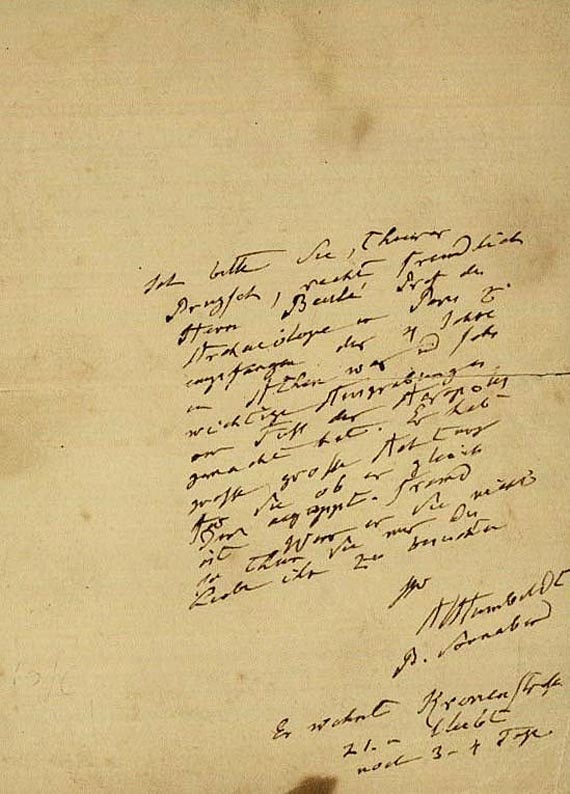 Ich bitte Sie, theurer
Brugsch, recht freundlich
Herrn Beulé Prof der
Archaeologie in Paris zu
empfangen der 4 Jahre
in Athen war und sehr
wichtige Ausgrabungen
am Fuss der Acropolis
gemacht hat. Er hat
grosse Achtung
für Sie ob er gleich
kein aegypt. Freund
ist. Wenn er Sie nicht
so thun Sie mir die
Liebe ihn zu besuchen
Ihr
AHumboldt
Sonnabend
Er wohnt Kronenstrasse
21. u bleibt
noch 3-4 Tage.